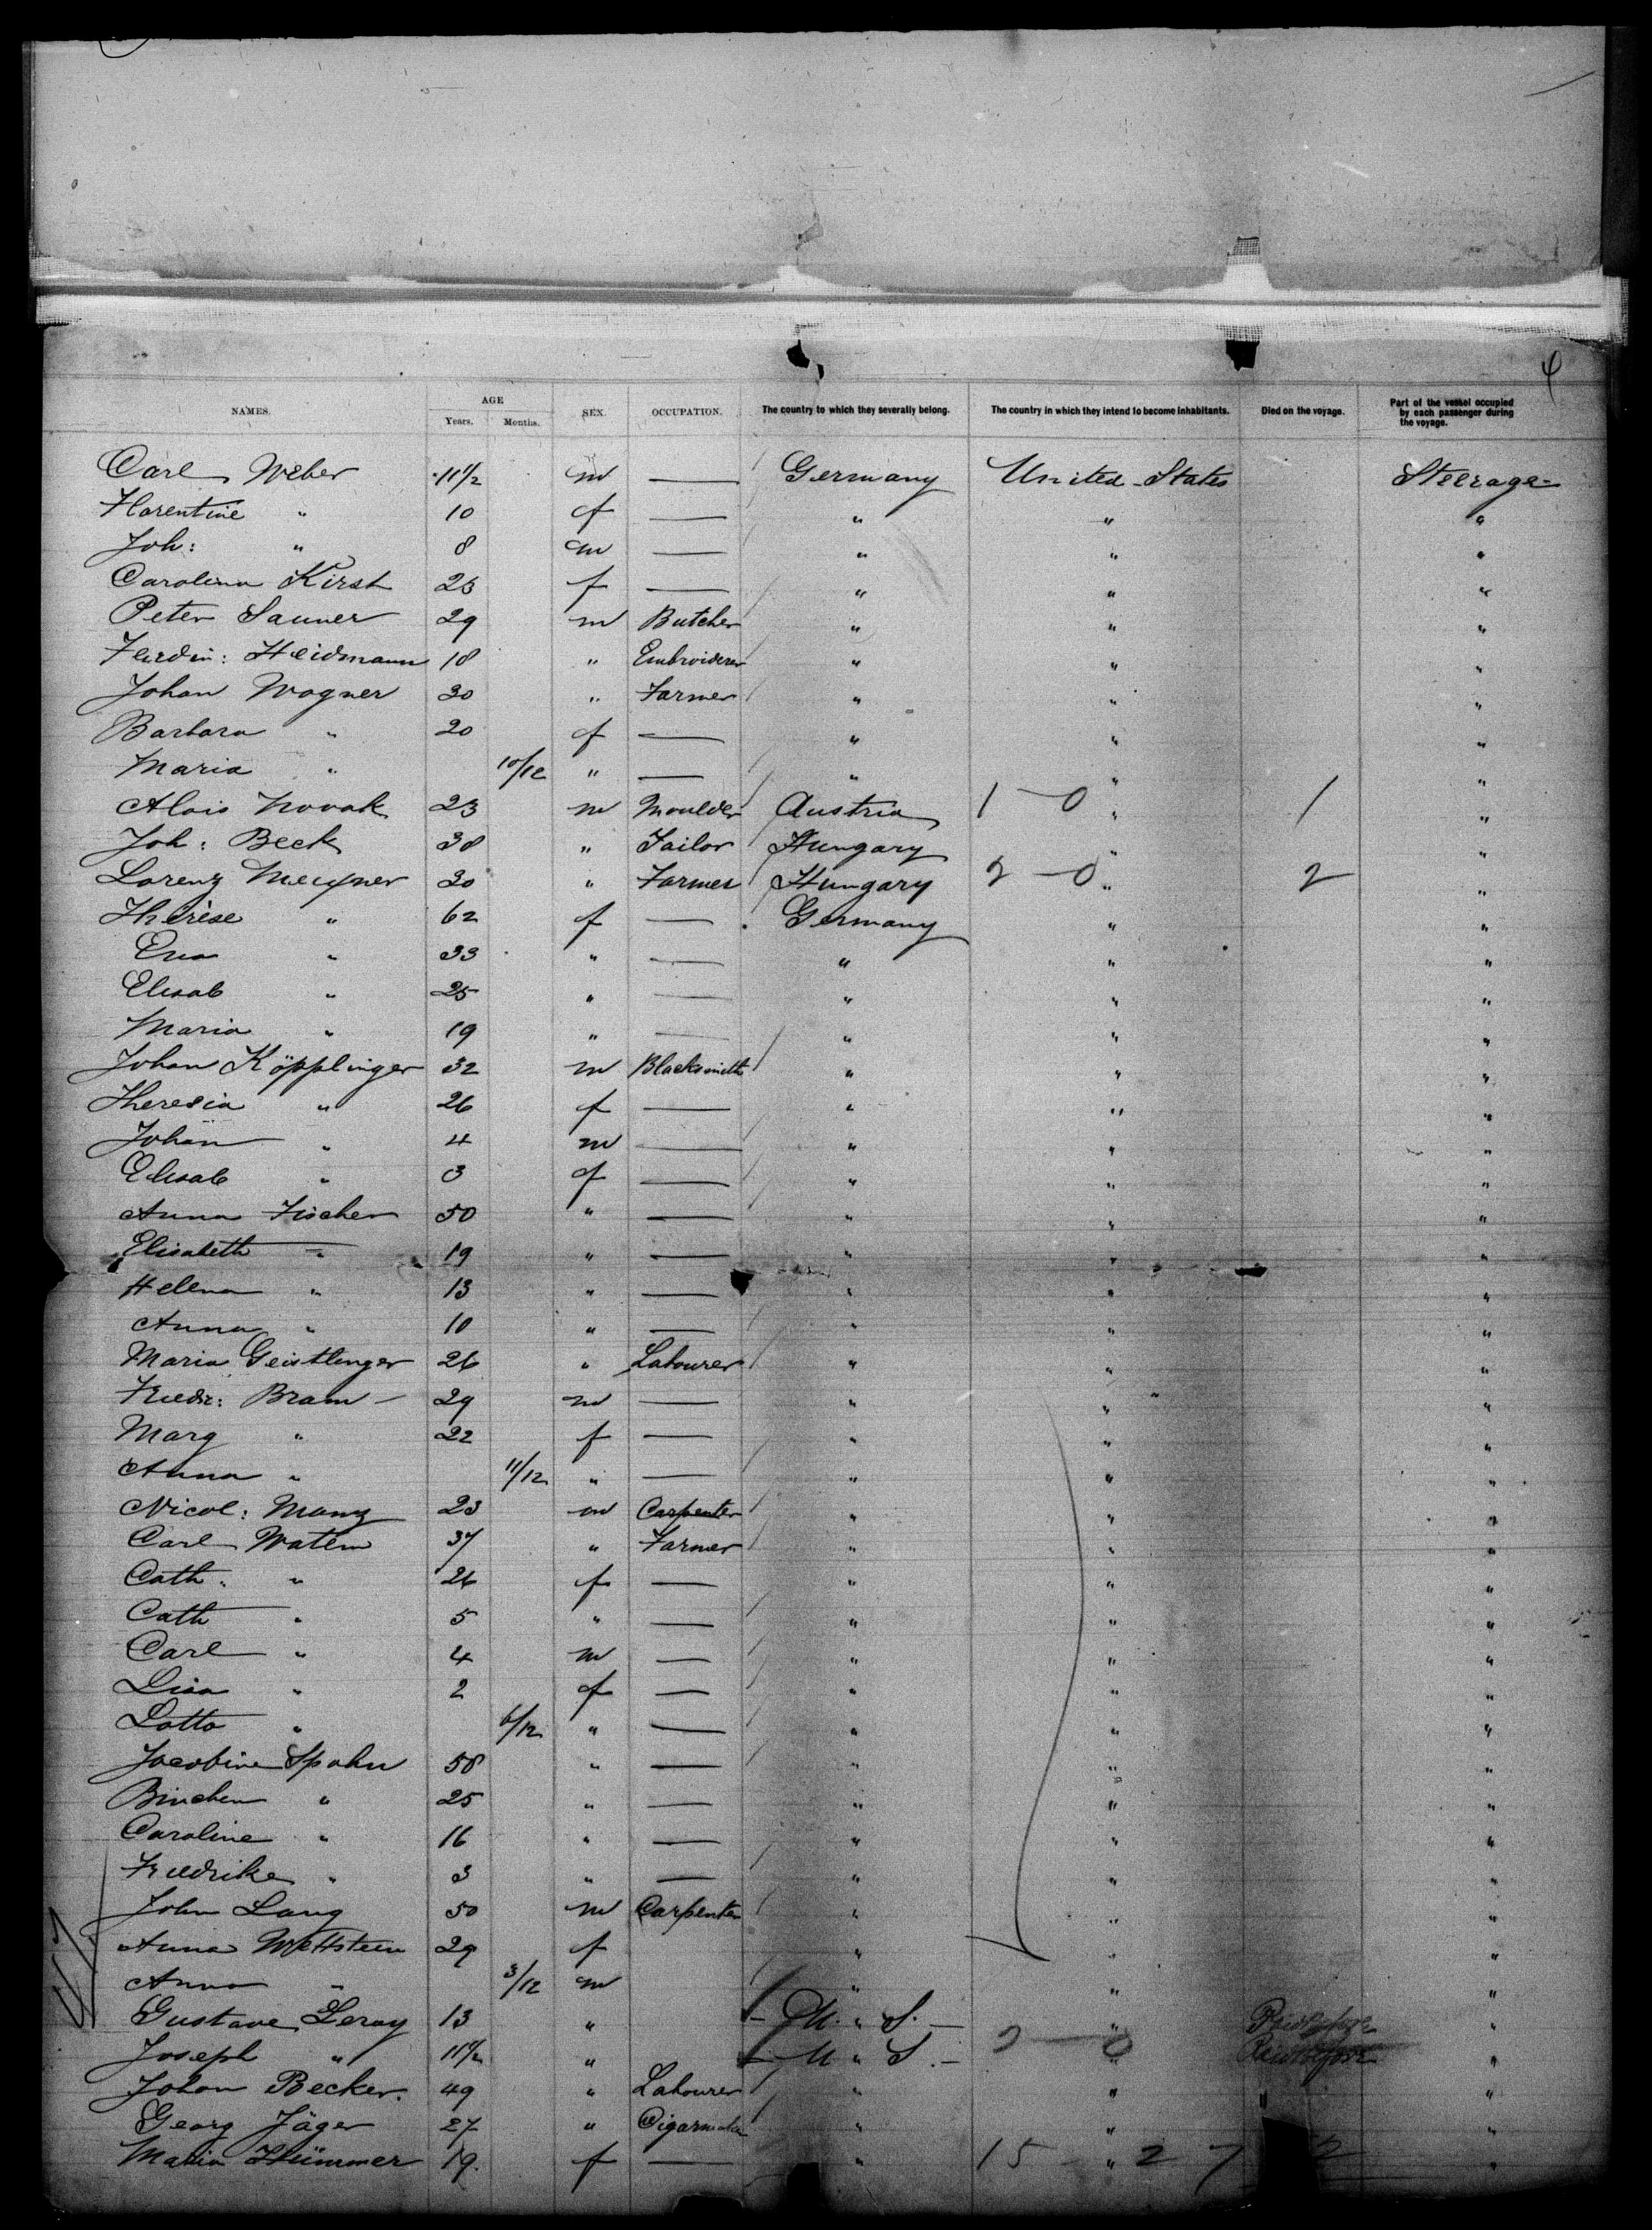 4
NAMES. AGE SEX. OCCUPATION. The country to which they severally belong. The country in which they intend to become inhabitants. Died on the voyage. Part of the vessel occupied by each passenger during the voyage.
Years. Months.
Carl Weber 11 1/2 m — Germany United States Steerage
Florentine " 10 f — " " "
Joh: " 8 m — " " "
Carolina Kirst 23 f — " " "
Peter Sauner 29 m Butcher " " "
Ferdin: Heidmann 18 " Embroiderer " " "
Johan Wagner 30 " Farmer " " "
Barbara " 20 f — " " "
Maria " 10/12 " — " " "
Alois Novak 23 m Moulder Austria 1—0 " 1 "
Joh: Beck 38 " Tailor Hungary " "
Lorenz 30 " Farmer Hungary 2—0 " 2 "
Therèse " 62 f — Germany " "
Eva " 33 " — " " "
Elisab " 25 " — " " "
Maria " 19 " — " " "
Johan Köpplinger 32 m Blacksmith " " "
Theresia " 26 f — " " "
Johan " 4 m — " " "
Elisab " 3 f — " " "
Anna Fischer 50 " — " " "
Elisabeth " 19 " — " " "
Helena " 13 " — " " "
Anna " 10 " — " " "
Maria Geistlinger 26 " Labourer " " "
Friedr: Bram 29 m — " " "
Marg " 22 f — " " "
Anna " 11/12 " — " " "
Nicol: Mang 23 m Carpenter " " "
Carl Watem 37 " Farmer " " "
Cath. " 26 f — " " "
Cath " 5 " — " " "
Carl " 4 m — " " "
Lisa " 2 f — " " "
Lotta " 6/12 " — " " "
Jacobine Spahn 58 " — " " "
Binchen " 25 " — " " "
Caroline " 16 " — " " "
Friedrike " 3 " — " " "
John Lang 50 m Carpenter " " "
Anna Wettstein 29 f " " "
Anna " 3/12 m " " "
Gustave Leroy 13 " U. " S. — " "
Joseph " 11 1/2 " U " S. — 2—0 " "
Johan Becker. 49 " Labourer " " " "
Georg Jäger 27 " Cigarmaker " " "
Maria Hümmer 19. f — " 15 " 27 2 "